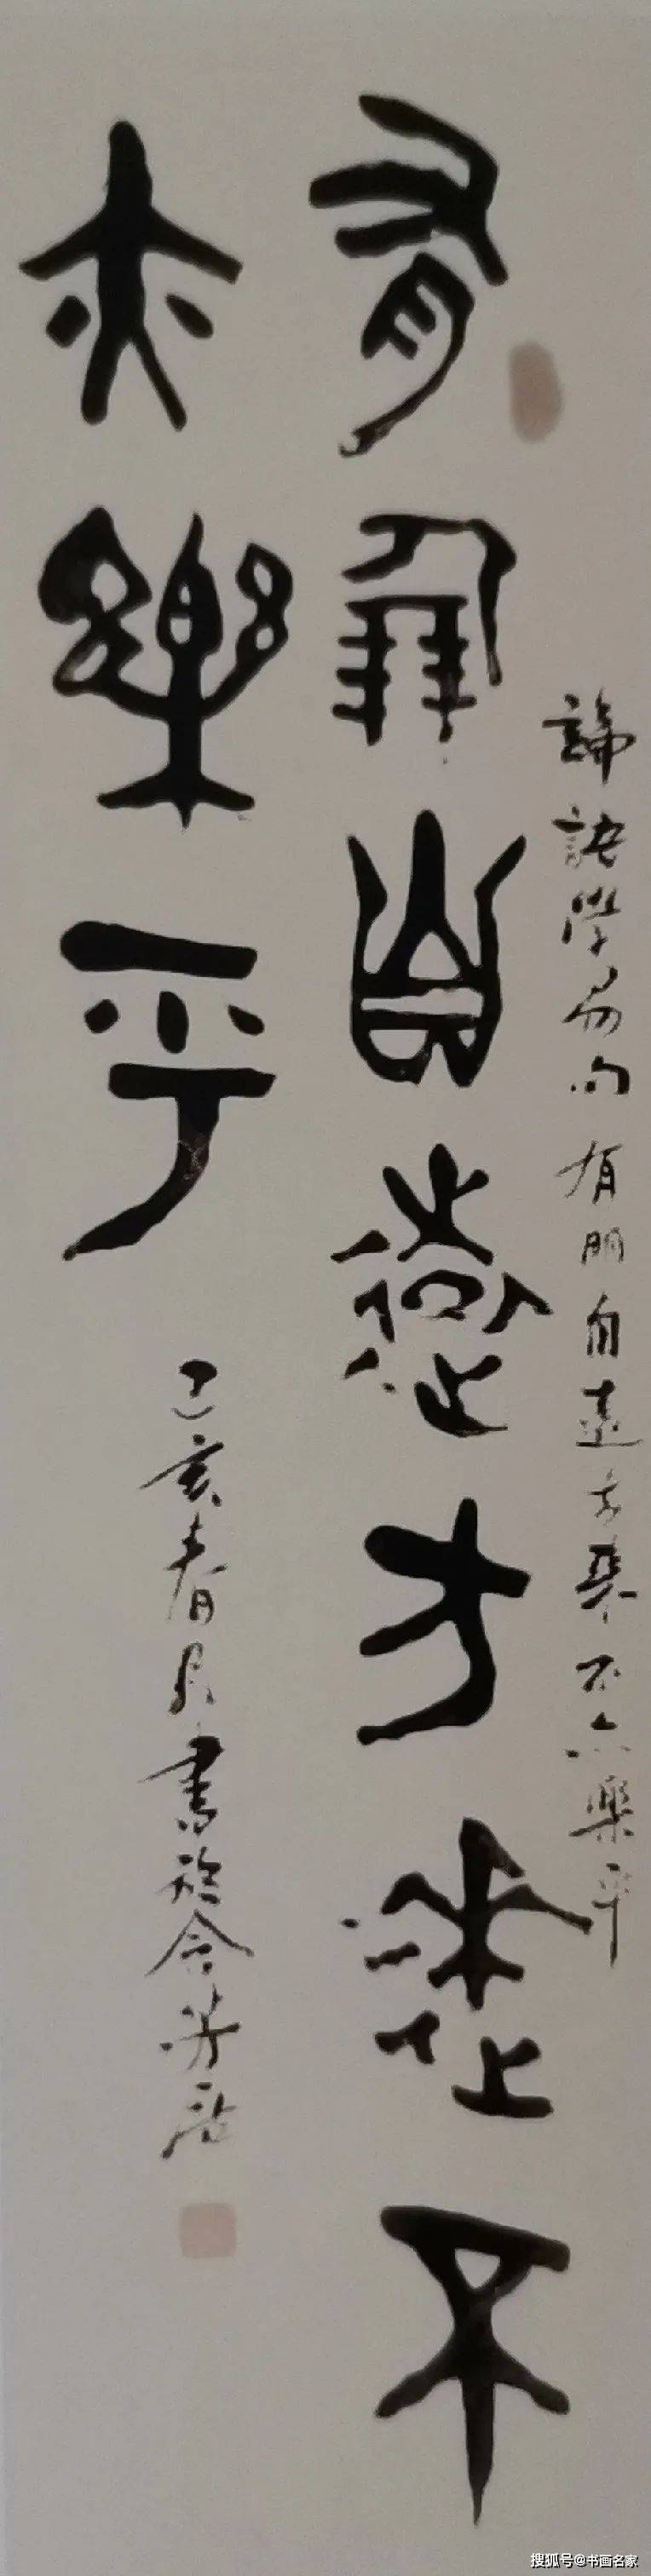 論語學易句 有朋自遠方來不亦樂乎
有朋自遠方來不
亦樂乎
己亥春月書於令芳
搜狐号@书画名家